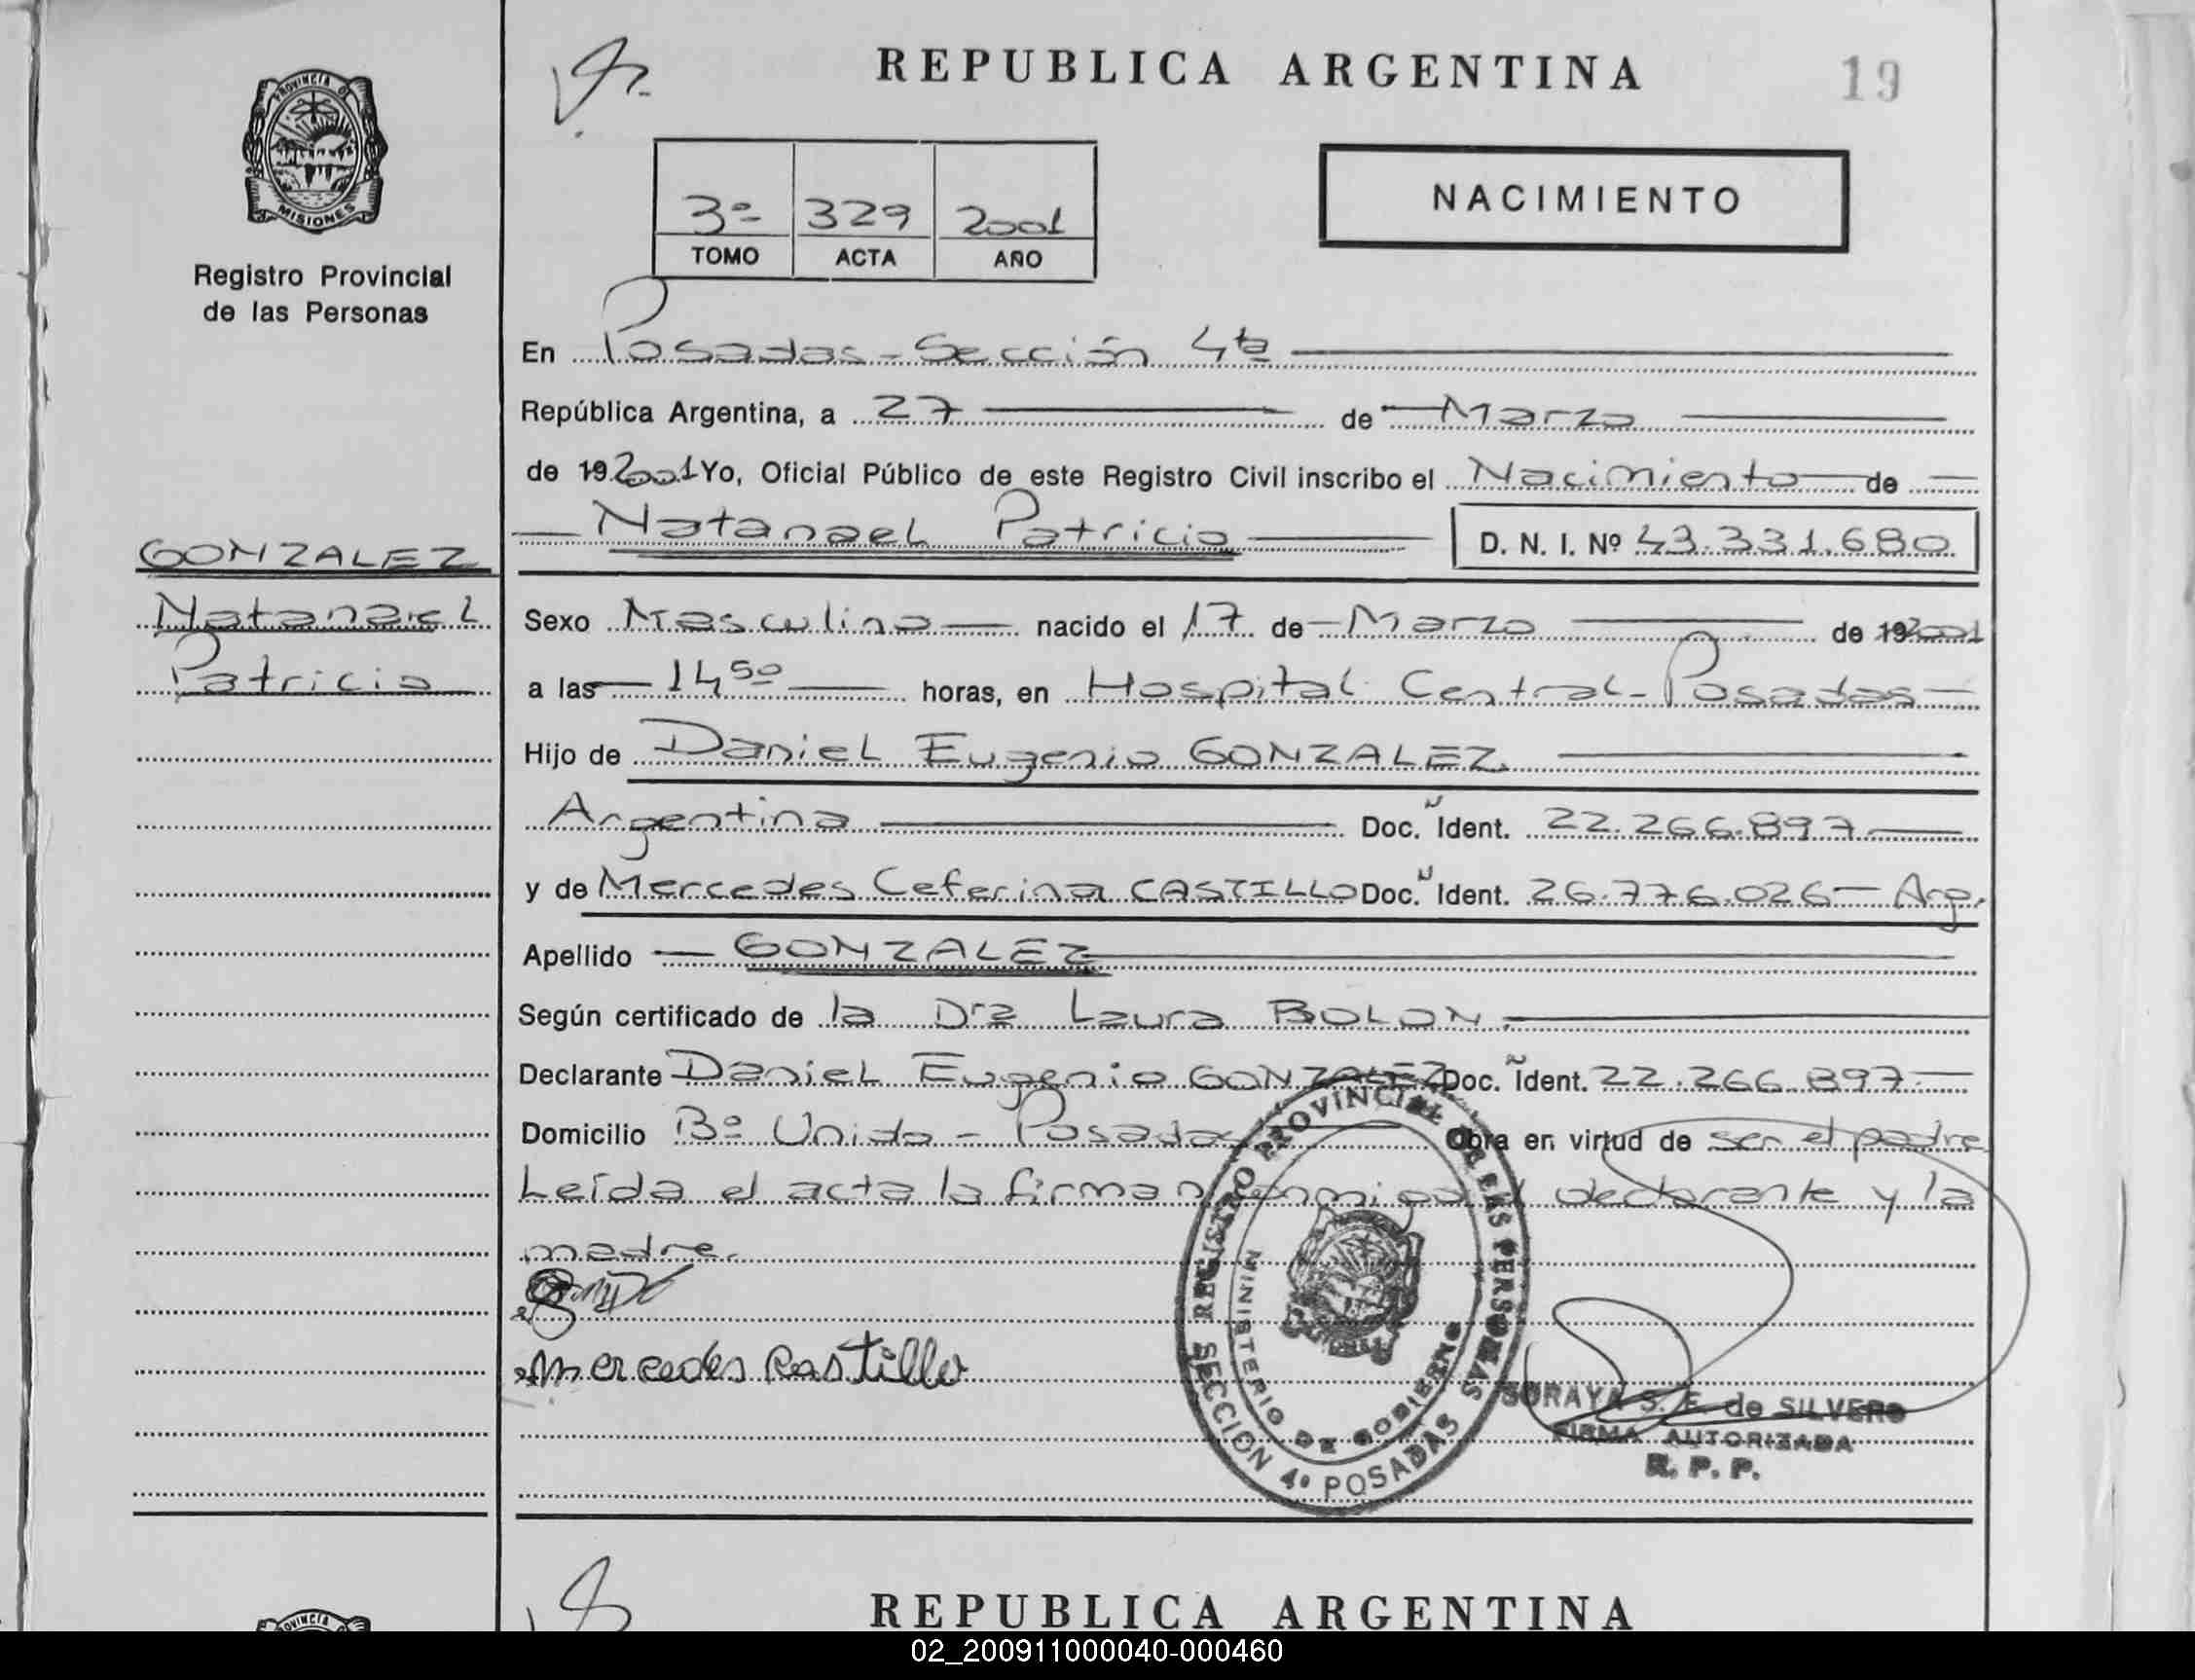 REPUBLICA ARGENTINA
19
PROVINCIA DE
MISIONES
Registro Provincial
de las Personas
3º 329 2001
TOMO ACTA AÑO
NACIMIENTO
En Posadas - Sección 4ta
República Argentina, a 27 de Marzo
de 19 2001 Yo, Oficial Público de este Registro Civil inscribo el Nacimiento de
Natanael Patricio D. N. I. Nº 43.331.680
GONZALEZ
Natanael
Patricio
Sexo Masculino nacido el 17 de Marzo de 19 2001
a las 14 50 horas, en Hospital Central - Posadas
Hijo de Daniel Eugenio GONZALEZ
Argentina Doc. Ident. 22.266.897
y de Mercedes Ceferina CASTILLO Doc. Ident. 26.776.026 - Arg.
Apellido GONZALEZ
Según certificado de la Dra Laura BOLON.
Declarante Daniel Eugenio GONZALEZ Doc. Ident. 22.266.897
Domicilio Bº Unido - Posadas Obra en virtud de ser el padre
Leída el acta la firman conmigo el declarante y la
madre.
Mercedes Castillo
REGISTRO PROVINCIAL DE LAS PERSONAS
MINISTERIO DE GOBIERNO
SECCION 4º POSADAS
SORAYA S. E. de SILVERO
FIRMA AUTORIZADA
R. P. P.
REPUBLICA ARGENTINA
02_200911000040-000460